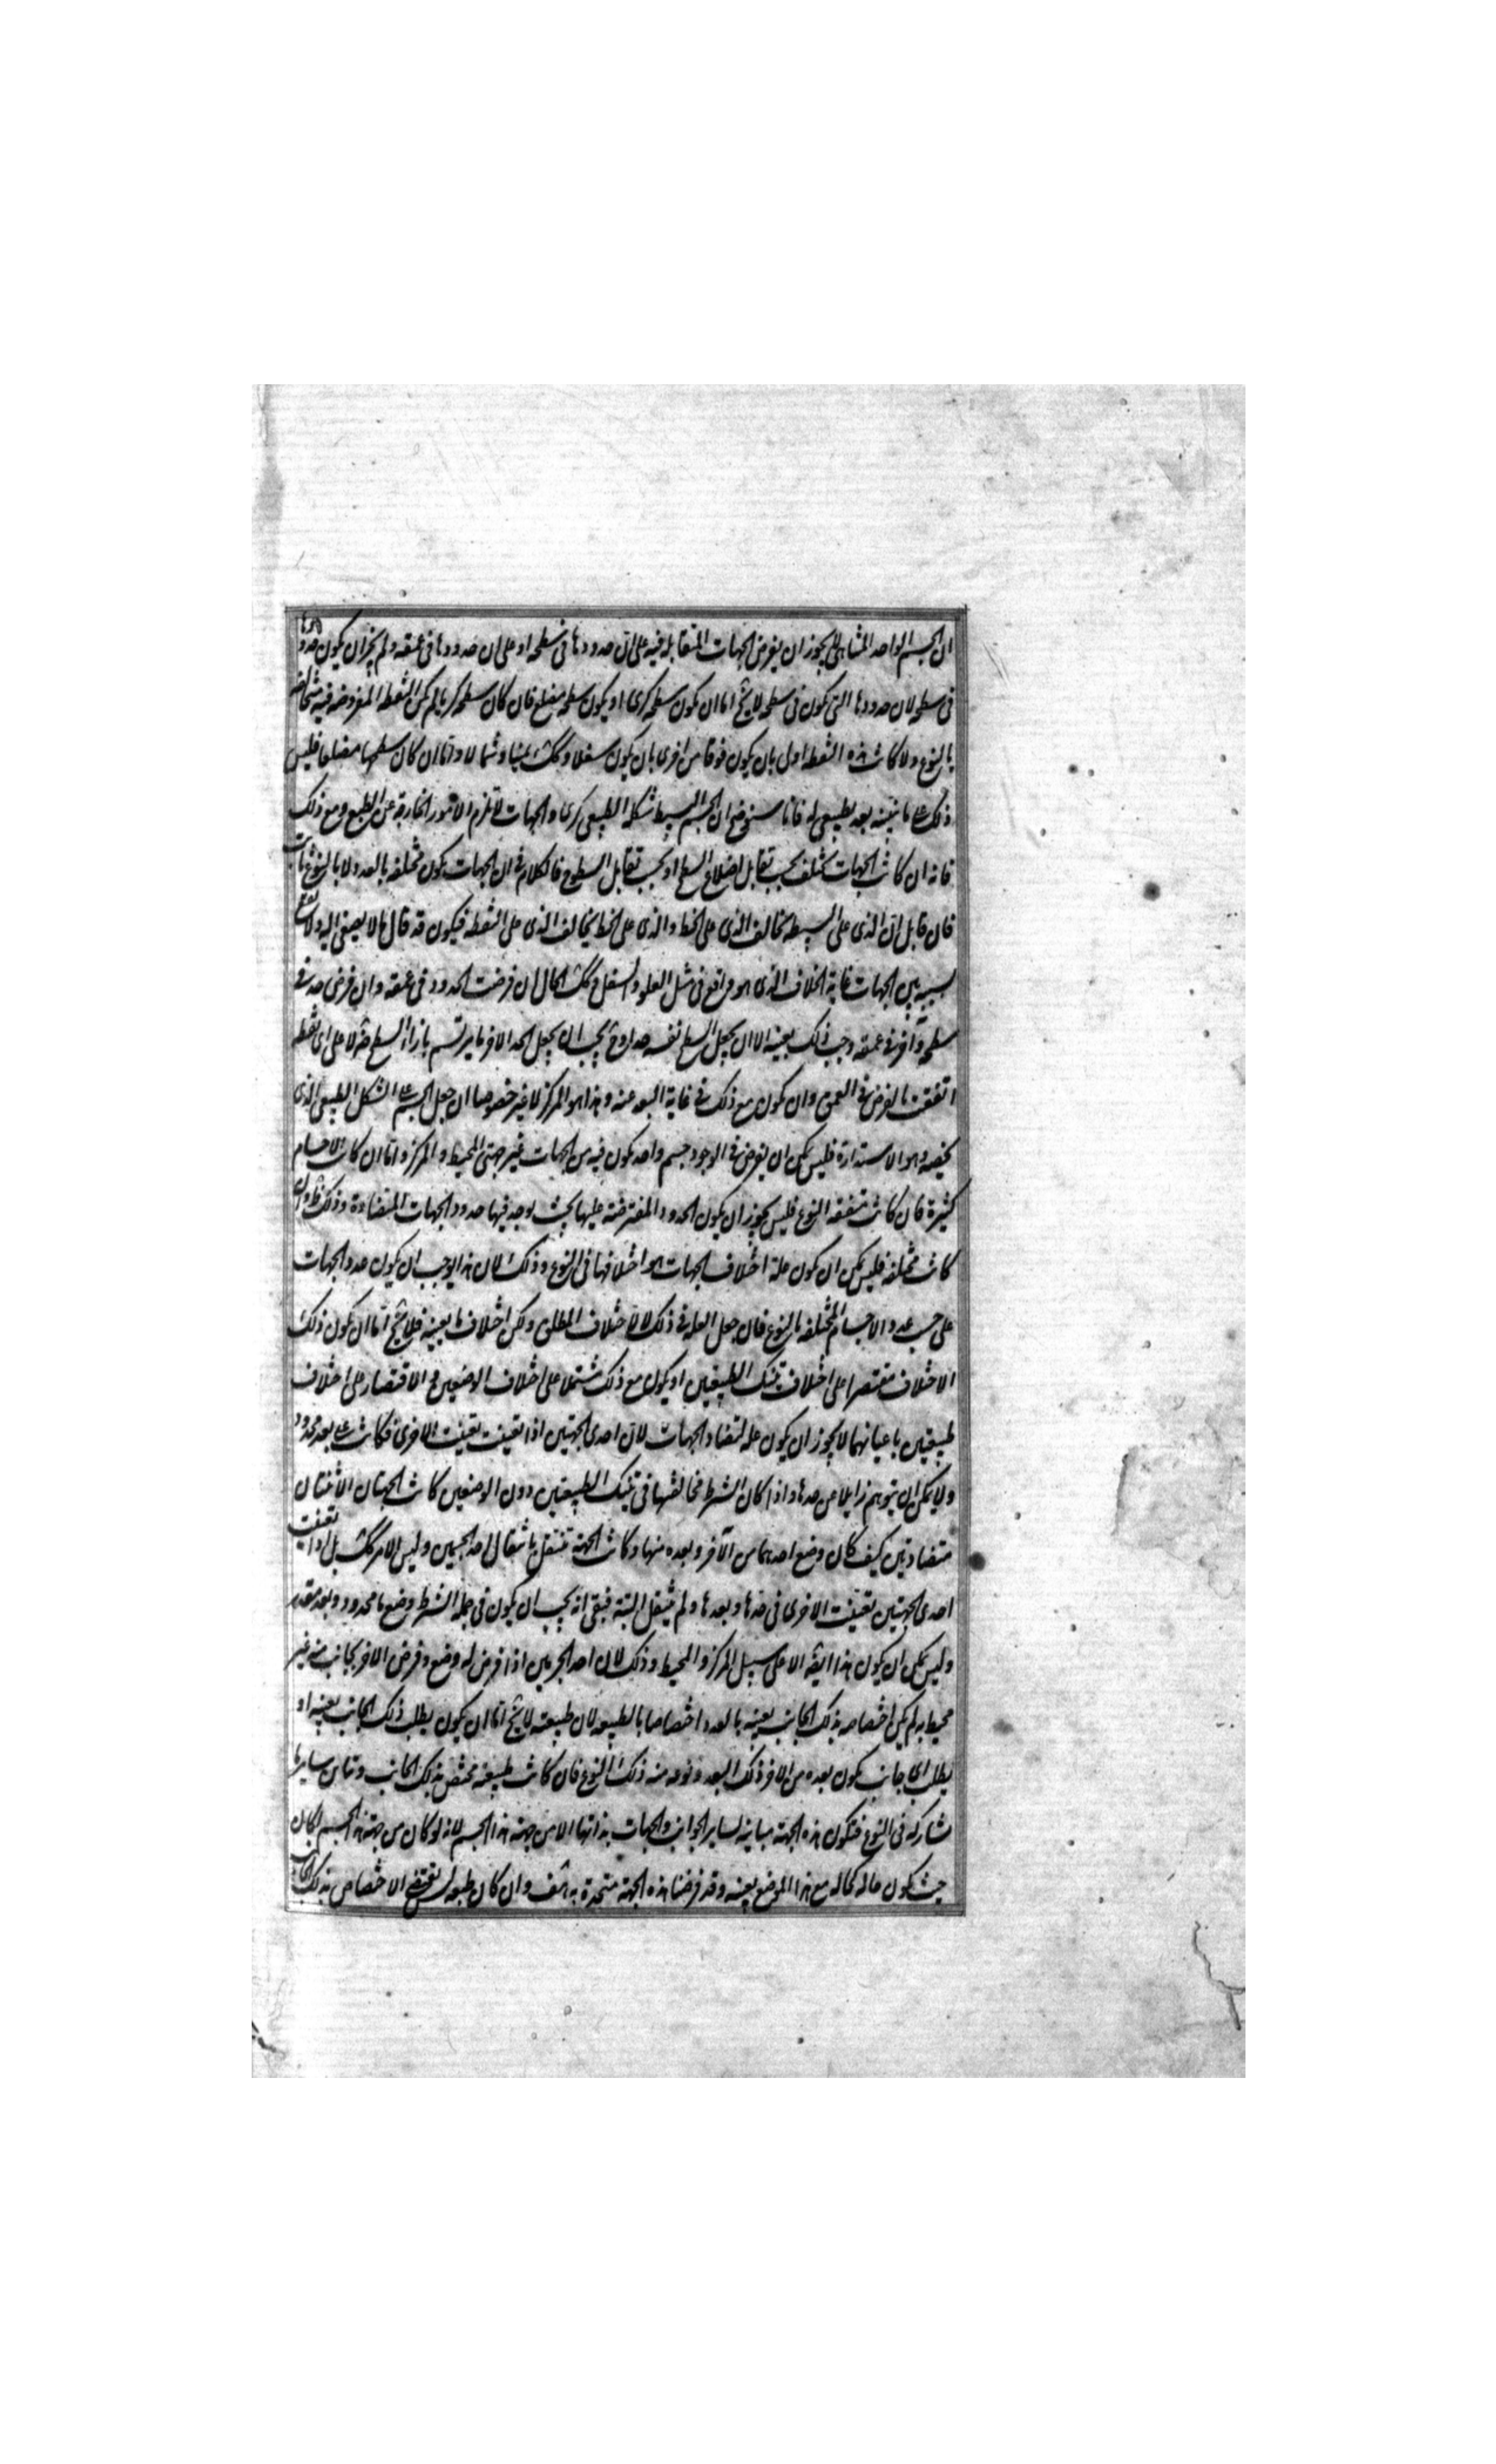 ان الجسم الواحد المتشابه لا يجوز ان يفرض الجهات المتقابلة فيه على ان حدودها فى سطحه او على ان حدودها فى عمقه ولم يجز ان يكون حدودها
فى سطحه لان حدودها التى تكون فى سطحه لا يخ اما ان تكون سطحه كرى او يكون سطحه مضلع فان كان سطحه كريا لم يكن النقطه المفروضه فيه متخالفه
بالنوع ولا كانت هذه النقطه اولى بان يكون فوقا من اخرى بان يكون سفلا وكك يمينا وشمالا واما ان كان سطحها مضلعا فليس
ذلك على ما نبينه بعد بطبيعى له فانا سنوضح ان الجسم البسيط شكله الطبيعى كرى والجهات لا تلزم الامور الخارجة عن الطبع ومع ذلك
فانه ان كانت الجهات تختلف بحسب تقابل اضلاع السطح او بحسب تقابل السطوح فالكلام فى ان الجهات يكون مختلفه بالعدد لا بالنوع ثابت
فان قايل ان الذى على البسيط يخالف الذى على الخط والذى على الخط يخالف الذى على النقطه فيكون قد قال ما لا يصغى اليه ولا يقع
بسببه بين الجهات غاية الخلاف الذى هو واقع فى مثل العلو والسفل وكك الحال ان فرضت الحدود فى عمقه وان فرض حد فى
سطحه وآخر فى عمقه وجب ذلك بعينه الا ان يجعل السطح نفسه حدا وح يجب ان يجعل الحد الاخر ما يرتسم بازاء السطح ضرورة لا على اى نقطه
اتفقت بالفرض فى العمق وان تكون مع ذلك فى غاية البعد عنه وهذا هو المركز لا غير خصوصا ان جعل الجسم على الشكل الطبيعى الذى
يخصه وهو الاستدارة فليس يمكن ان يفرض فى الوجود جسم واحد تكون فيه من الجهات غير جهتى المحيط والمركز واما ان كانت الاجسام
كثيرة فان كانت متفقه النوع فليس يجوز ان يكون الحدود المفترضة عليها بحيث يوجد فيها حدود الجهات المتضادة وذلك ظ وان
كانت مختلفه فليس يمكن ان تكون علة اختلاف الجهات هو اختلافها فى النوع وذلك لان هذا يوجب ان يكون عدد الجهات
على حسب عدد الاجسام المختلفه بالنوع فان جعل العله فى ذلك لا الاختلاف المطلق ولكن اختلاف ما بعينه فلا يخ اما ان تكون ذلك
الاختلاف مقتصرا على اختلاف تينك الطبيعتين او يكون مع ذلك مشتملا على اختلاف الوضعين والاقتصار على اختلاف
طبيعتين باعيانهما لا يجوز ان يكون عله لتضاد الجهات لان احدى الجهتين اذا تعينت تعينت الاخرى فكانت على بعد محدود
ولا يمكن ان يتوهم زايلا عن حدها واذا كان الشرط مخالفتها فى تينك الطبيعتين دون الوضعين كانت الجهتان الاثنتان
متضادتين كيف كان وضع احدهما من الآخر وبعده منها وكانت الجهة تنتقل بانتقال احد الجسمين وليس الامر كك بل اذا تعينت
احدى الجهتين تعينت الاخرى فى حدها وبعدها ولم ينتقل البتة فبقى انه يجب ان يكون فى جمله الشرط وضع ما محدود وبعد مقدر
وليس يمكن ان يكون هذا ايضه الا على سبيل المركز والمحيط وذلك لان احد الجرمين اذا فرض له وضع وفرض الاخر بجانب منه غير
محيط به لم يكن اختصاصه بذلك الجانب بعينه بالعدد اختصاصا بالطبيعه لان طبيعته لا يخ اما ان يكون يطلب ذلك الجانب بعينه او
يطلب اى جانب يكون بعده من الاخر ذلك البعد ونوعه منه ذلك النوع فان كانت طبيعته مختص بذلك الجانب وتباين ساير ما
يشاركه فى النوع فتكون هذه الجهة مباينه لساير الجوانب والجهات بذاتها لا من جهة هذا الجسم لانه لو كان من جهة هذا الجسم لكان
حيث تكون حاله كحاله مع هذا الموضع بعينه وقد فرضنا هذه الجهة متحددة به هف وان كان طبعه ليس يقتضى الاختصاص بذلك الجانب